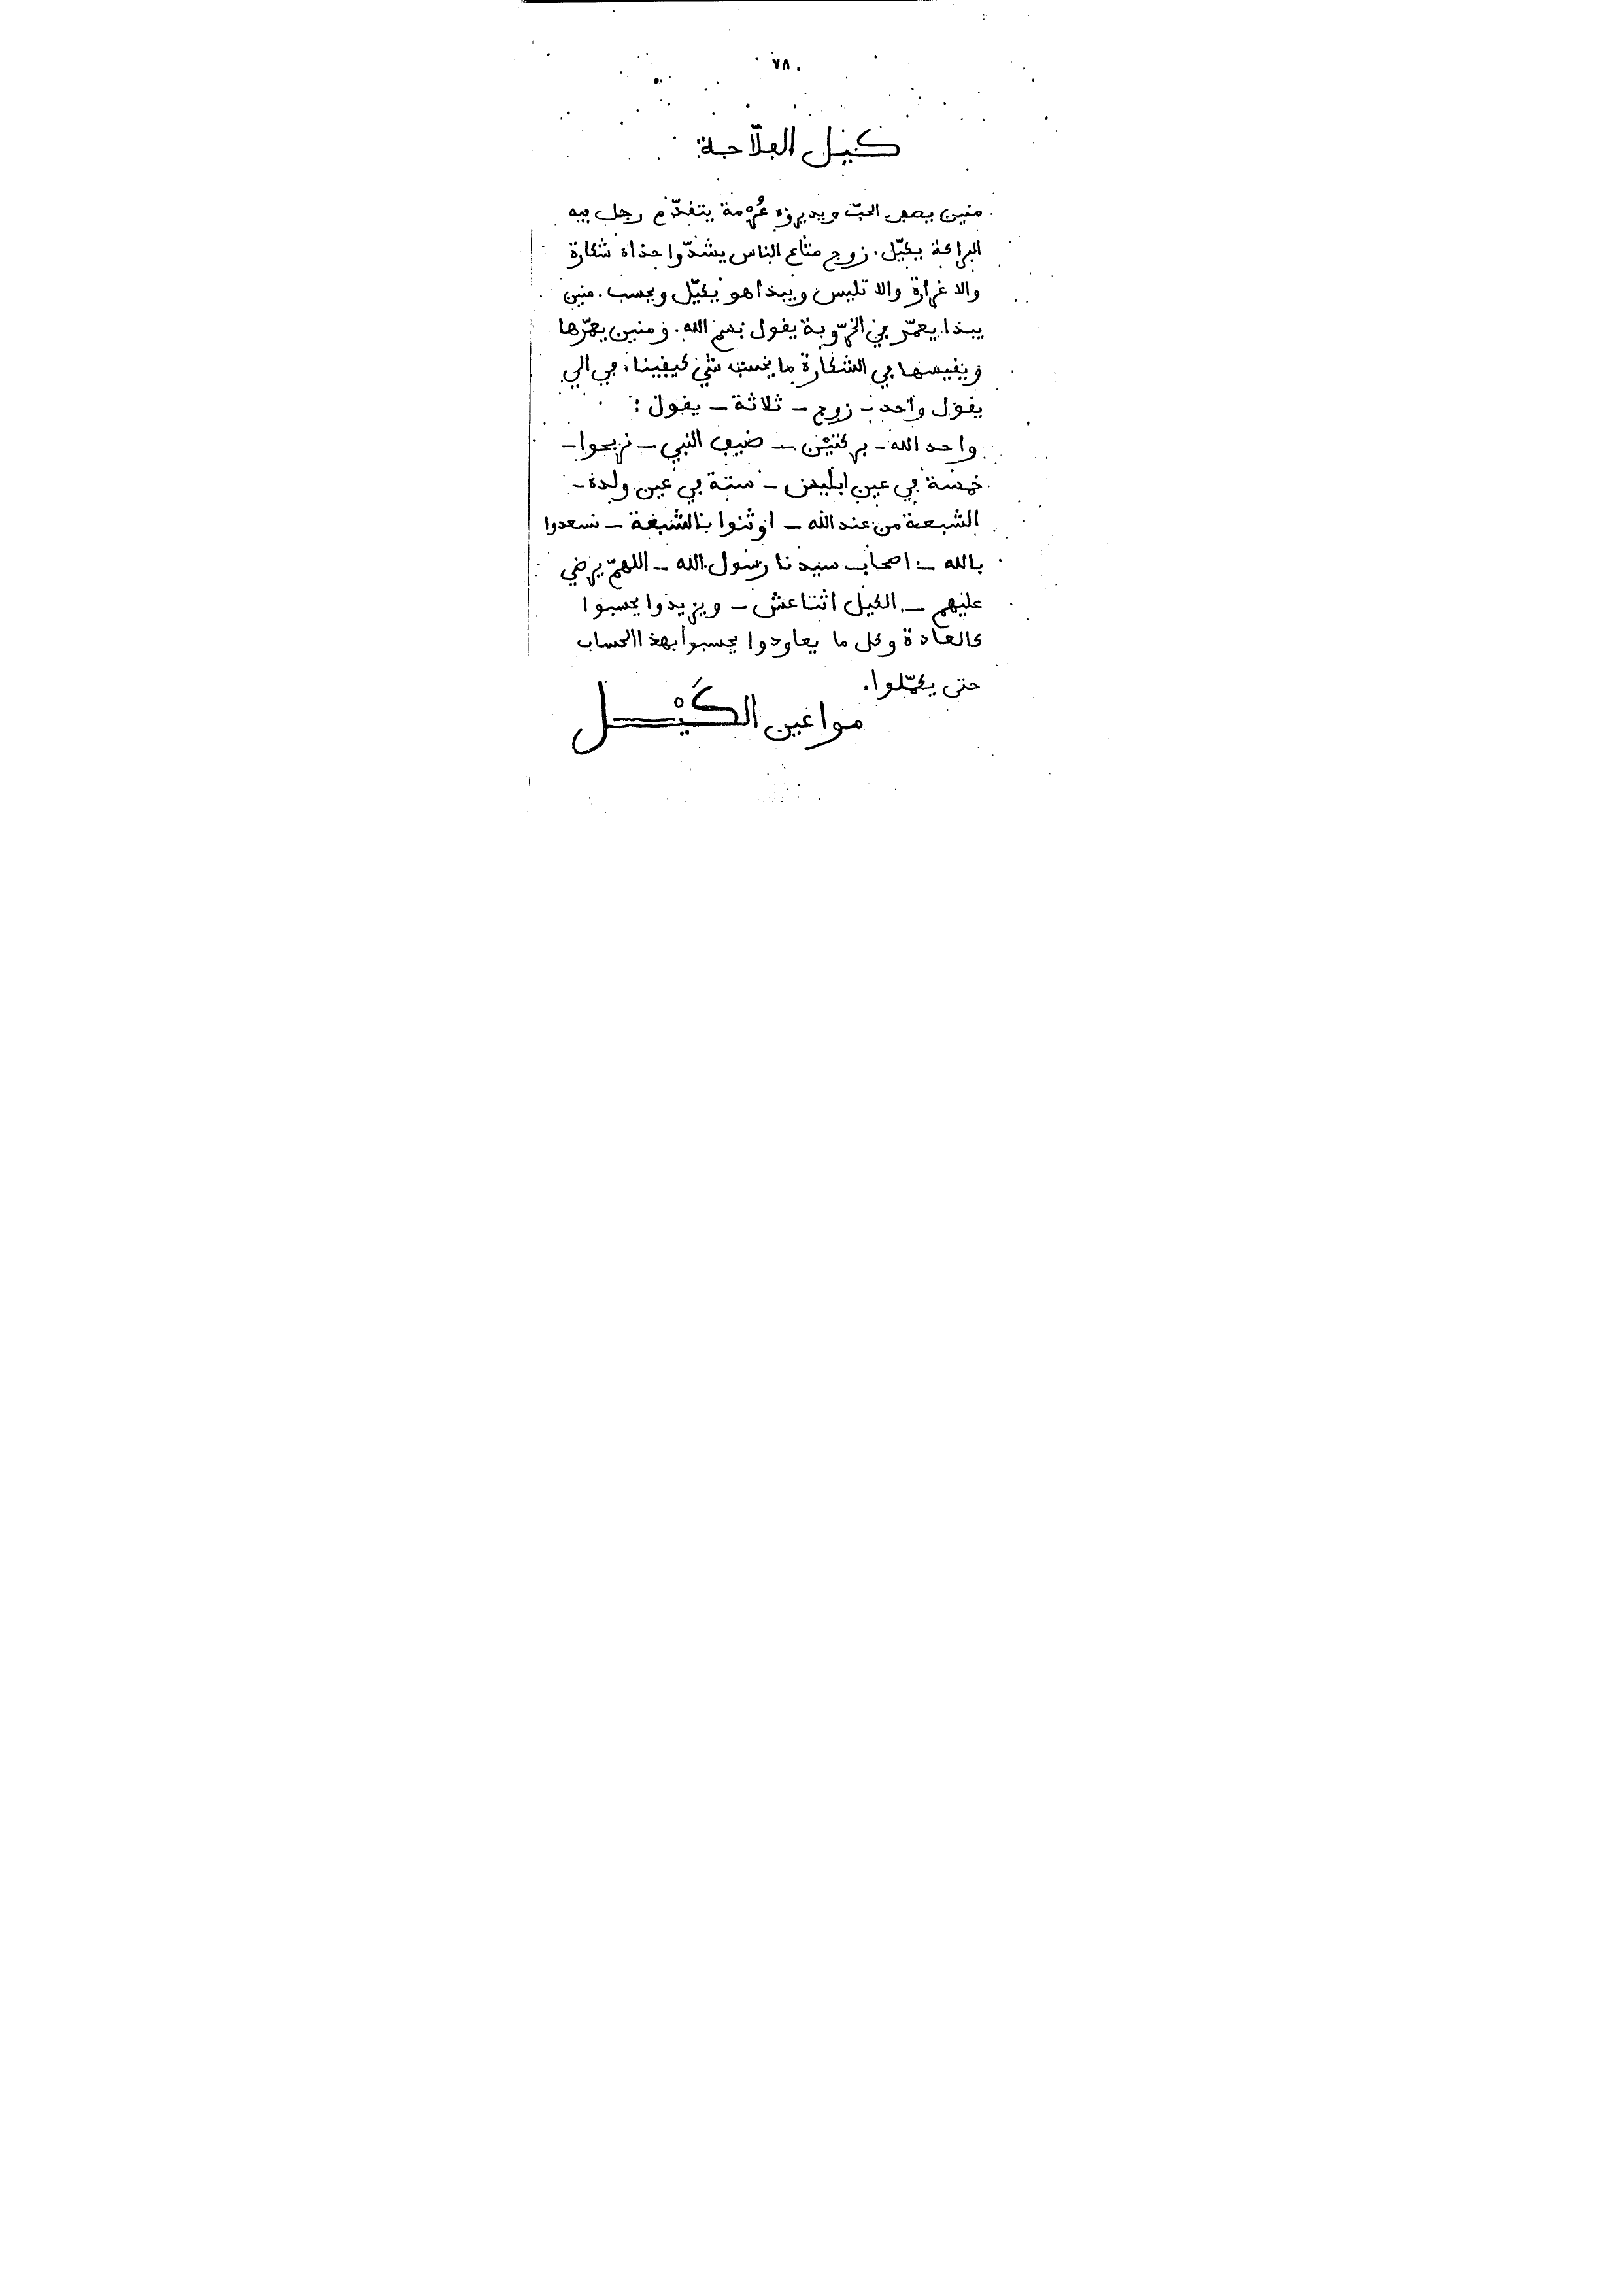 ٧٨
كيل الڢلّاحة
منين يصڢى الحبّ ويديروه عُرْمة يتڧدّم رجل ڢيه
البراكة يكيّل. زوج متاع الناس يشدّوا حذاه شكارة
والا غرارة والا تليس ويبدا هو يكيّل ويحسب. منين
يبدا يعمّر ڢي الخرّوبة يڧول بسم الله. ومنين يعمّرها
ويڧيسها ڢي الشكارة ما يحسب شي كيڢينا، ڢي الي
يڧول واحد - زوج - ثلاثة - يڧول :
واحد الله - بركتيْن - ضيڢ النبي - نربحوا -
خمسة ڢي عين ابليس - ستة ڢي عين ولده -
الشبعة من عند الله - اوثنوا بالشبعة - نسعدوا
بالله - اصحاب سيدنا رسول الله - اللهمّ يرضي
عليهم - الكيل اثناعش - ويزيدوا يحسبوا
كالعادة وكل ما يعاودوا يحسبوا بهذا الحساب
حتى يكمّلوا.
مواعين الكَيْل